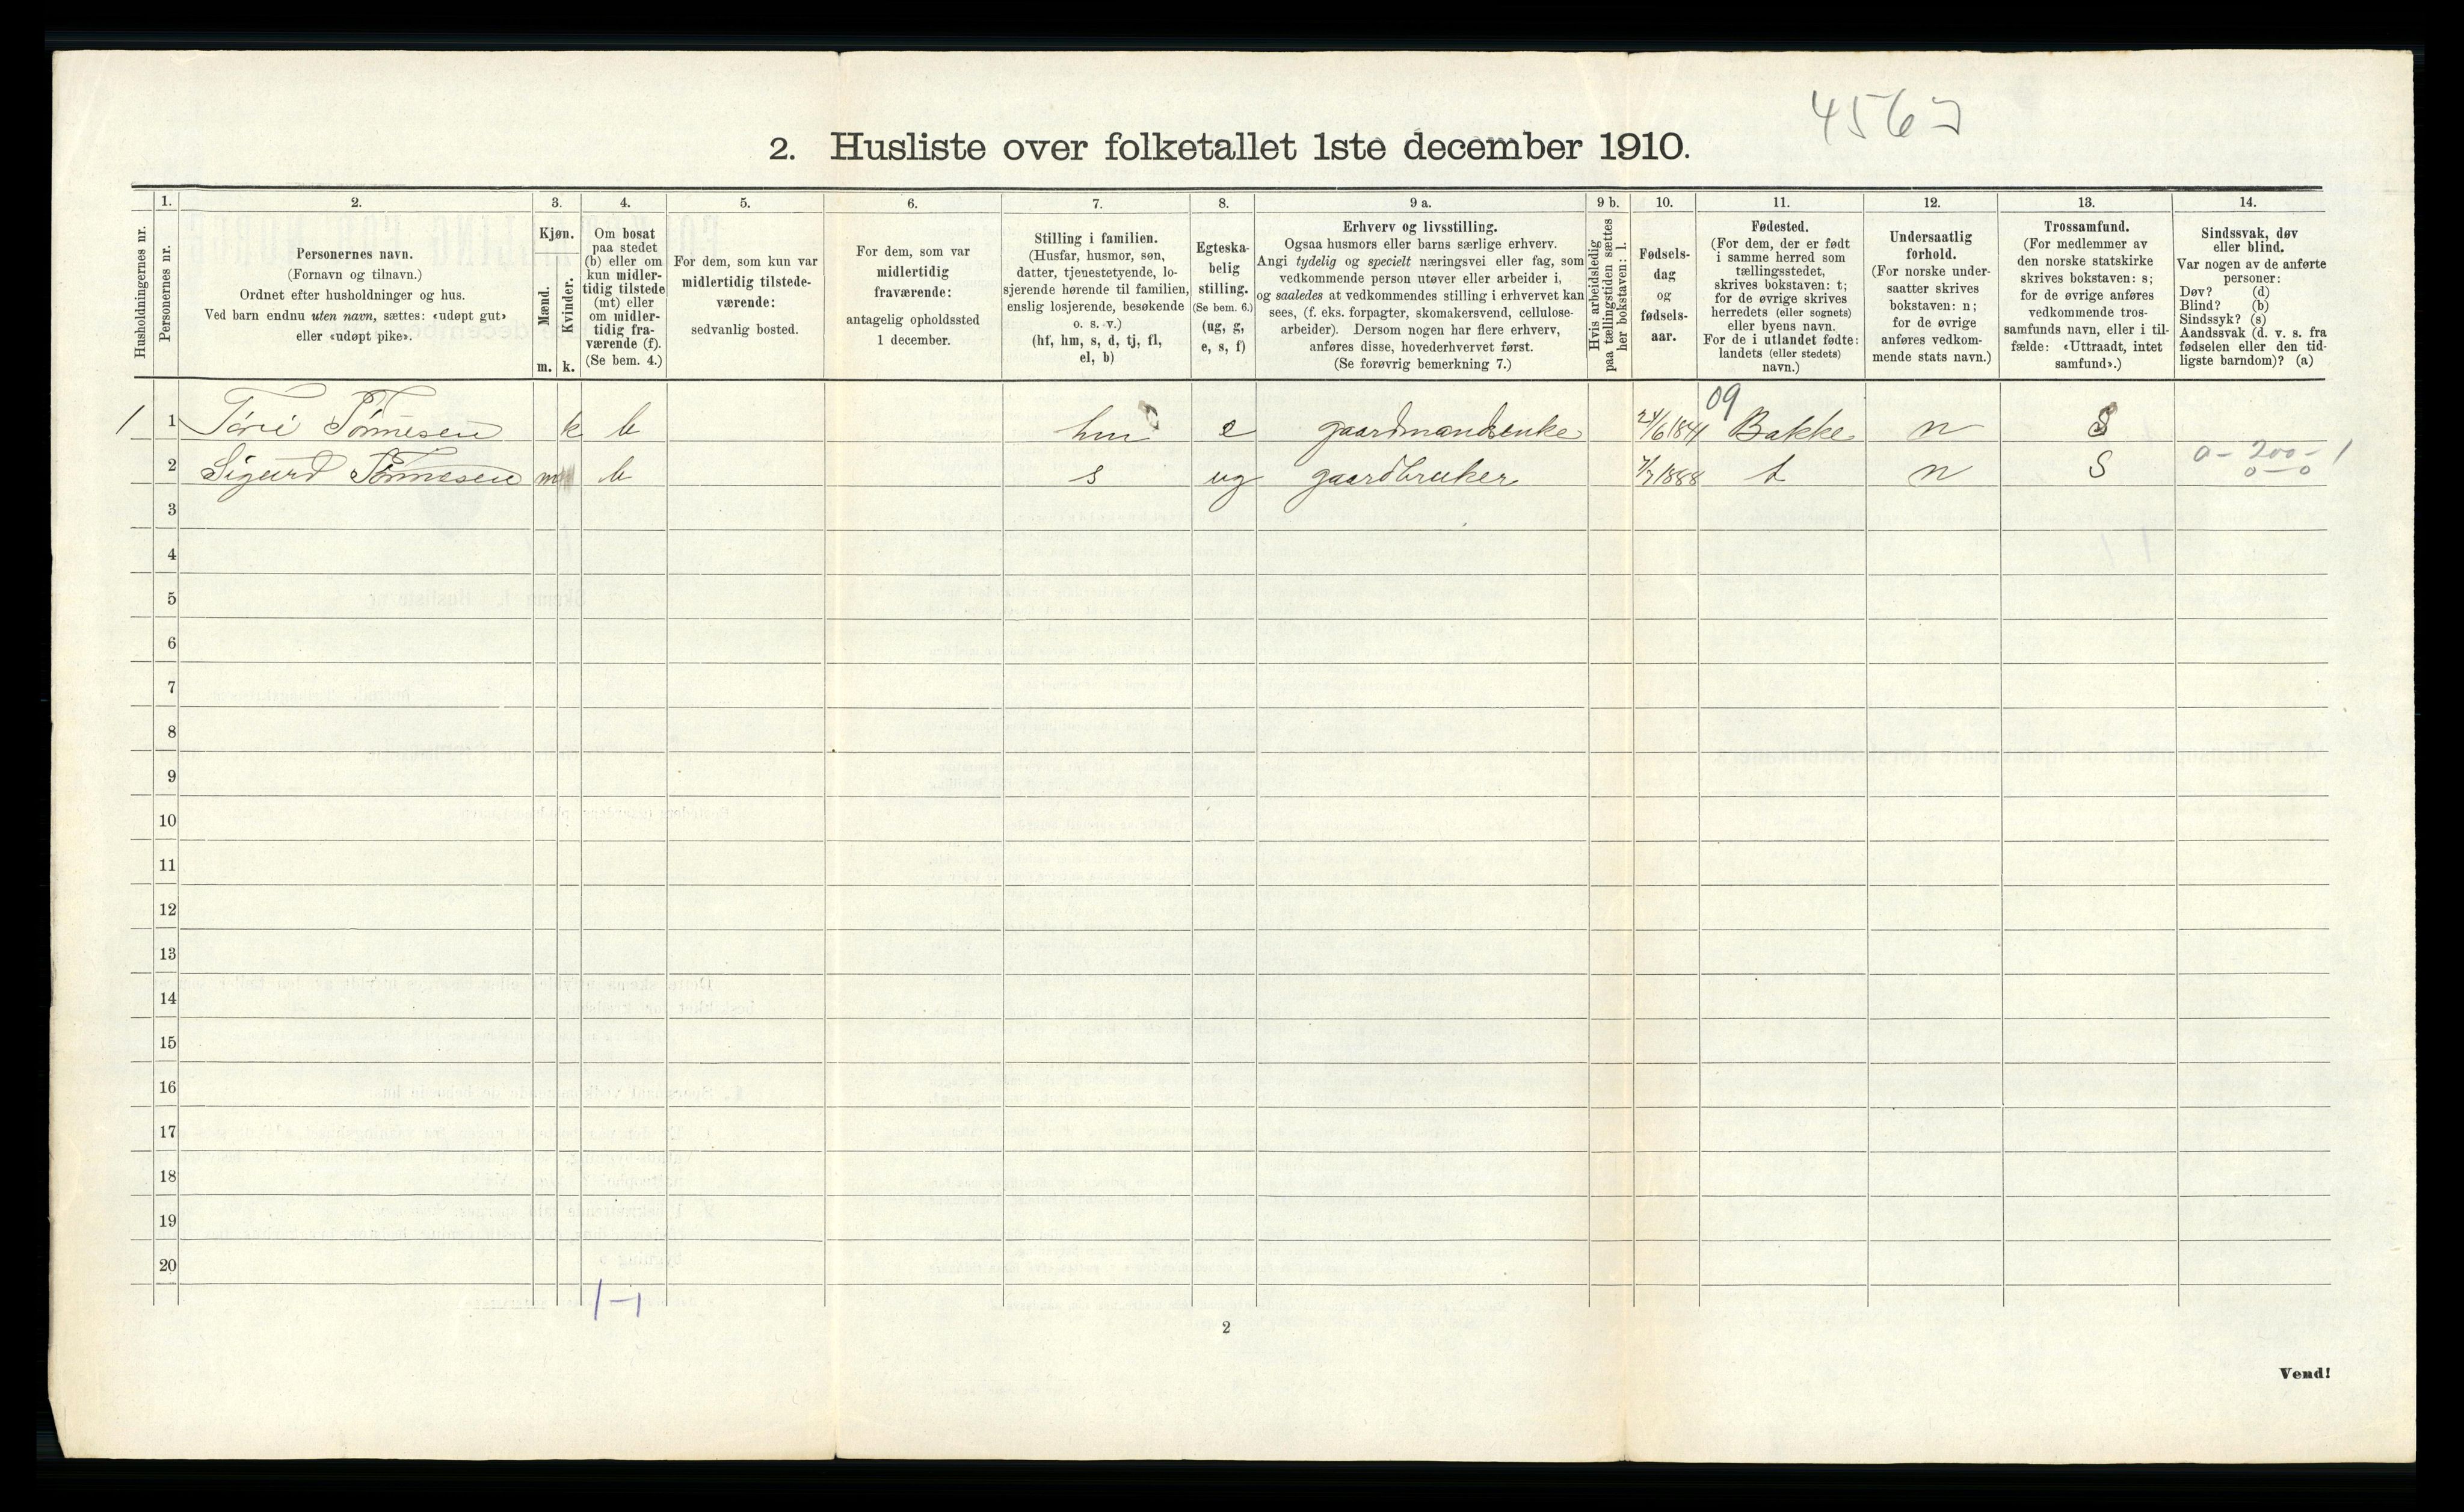 4567
2. Husliste over folketallet 1ste december 1910.
Husholdningernes nr.
1.
Personernes nr.
2.
Personernes navn.
(Fornavn og tilnavn.)
Ordnet efter husholdninger og hus.
Ved barn endnu uten navn, sættes: «udøpt gut»
eller «udøpt pike».
3.
Kjøn.
Mænd.
Kvinder.
m. k.
4.
Om bosat
paa stedet
(b) eller om
kun midler-
tidig tilstede
(mt) eller
om midler-
tidig fra-
værende (f).
(Se bem. 4.)
5.
For dem, som kun var
midlertidig tilstede-
værende:
sedvanlig bosted.
6.
For dem, som var
midlertidig
fraværende:
antagelig opholdssted
1 december.
7.
Stilling i familien.
(Husfar, husmor, søn,
datter, tjenestetyende, lo-
sjerende hørende til familien,
enslig losjerende, besøkende
o. s. v.)
(hf, hm, s, d, tj, fl,
el, b)
8.
Egteska-
belig
stilling.
(Se bem. 6.)
(ug, g,
e, s, f)
9 a.
Erhverv og livsstilling.
Ogsaa husmors eller barns særlige erhverv.
Angi tydelig og specielt næringsvei eller fag, som
vedkommende person utøver eller arbeider i,
og saaledes at vedkommendes stilling i erhvervet kan
sees, (f. eks. forpagter, skomakersvend, cellulose-
arbeider). Dersom nogen har flere erhverv,
anføres disse, hovederhvervet først.
(Se forøvrig bemerkning 7.)
9 b.
Hvis arbeidsledig
paa tællingstiden sættes
her bokstaven: l.
10.
Fødsels-
dag
og
fødsels-
aar.
11.
Fødested.
(For dem, der er født
i samme herred som
tællingsstedet,
skrives bokstaven: t;
for de øvrige skrives
herredets (eller sognets)
eller byens navn.
For de i utlandet fødte:
landets (eller stedets)
navn.)
12.
Undersaatlig
forhold.
(For norske under-
saatter skrives
bokstaven: n;
for de øvrige
anføres vedkom-
mende stats navn.)
13.
Trossamfund.
(For medlemmer av
den norske statskirke
skrives bokstaven: s;
for de øvrige anføres
vedkommende tros-
samfunds navn, eller i til-
fælde: «Uttraadt, intet
samfund».)
14.
Sindssvak, døv
eller blind.
Var nogen av de anførte
personer:
Døv? (d)
Blind? (b)
Sindssyk? (s)
Aandssvak (d. v. s. fra
fødselen eller den tid-
ligste barndom)? (a)
09
1 1 Tønnesen k b hm e gaardmandsenke 24/6 1841 Bakke n S
0 - 200 - 1
2 Sigurd Tønnesen m b s ug gaardbruker 7/7 1888 t n S 0 - 0
3
4
5
6
7
8
9
10
11
12
13
14
15
16
17
18
19
20
1 - 1
2
Vend!